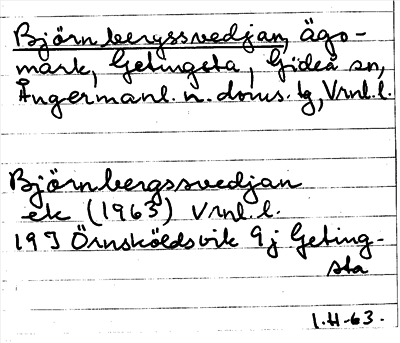 Björnbergssvedjan, ägo-
mark, Getingsta, Gideå sn,
Ångermanl. n. doms. tg, Vrnl. l.
Björnbergssvedjan
ek (1963) Vrnl. l.
19 I Örnsköldsvik 9j Geting-
sta
1.H-63.